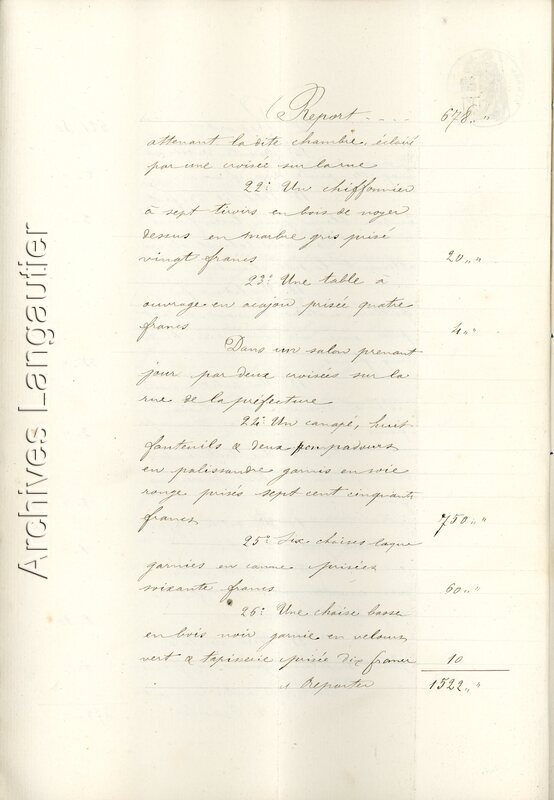 Report .... 678 " "
attenant la dite chambre, éclairé
par une croisée sur la rue
22° Un chiffonnier
à sept tiroirs en bois de noyer
dessus en marbre gris prisé
vingt francs 20 " "
23° Une table à
ouvrage en acajou prisée quatre
francs 4 " "
Dans un salon prenant
jour par deux croisées sur la
rue de la préfecture
24° Un canapé, huit
fauteuils & deux pompadours
en palissandre garnis en soie
rouge prisés sept cent cinquante
francs 750 " "
25° Six chaises laque
garnies en canne prisées
soixante francs 60 " "
26° Une chaise basse
en bois noir garnie en velours
vert & tapisserie prisée dix francs 10
à Reporter 1522 " "
Archives Langautier